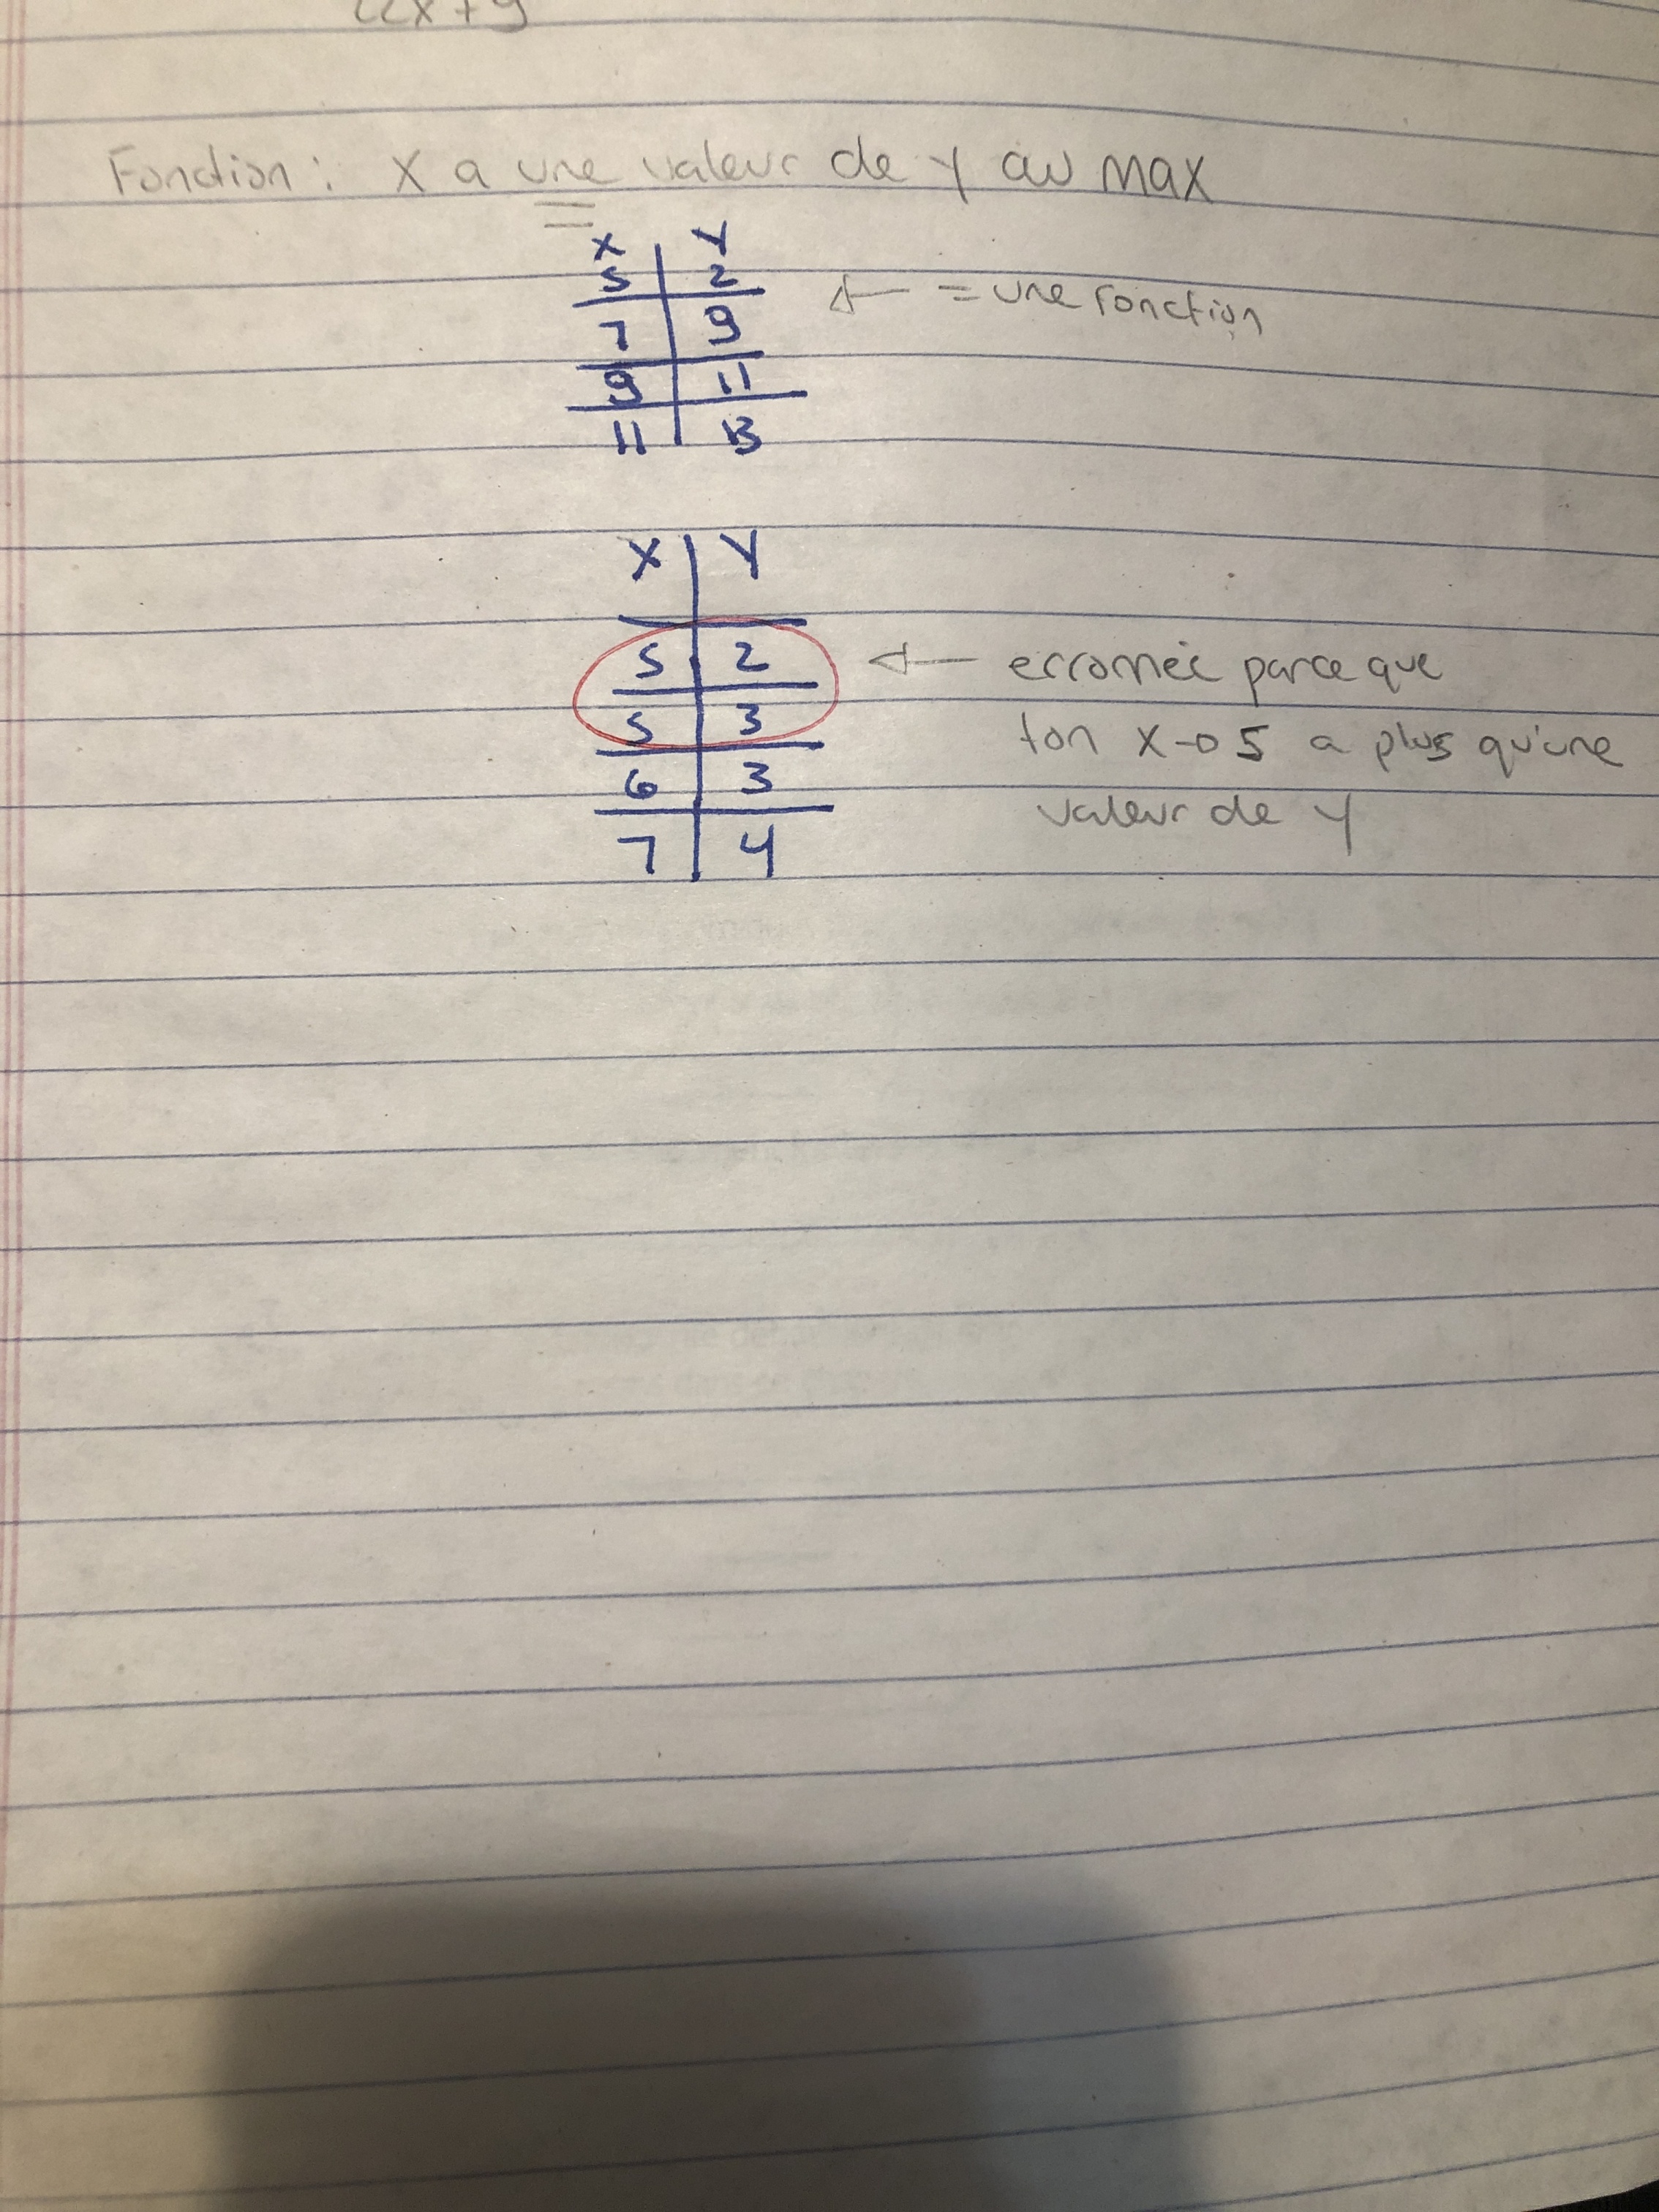 Fonction: X a une valeur de Y au max
X Y
5 2 ← = une fonction
7 9
9 11
11 13
X Y
5 2 ← erronnée parce que
5 3 ton X→5 a plus qu'une
6 3 valeur de Y
7 4